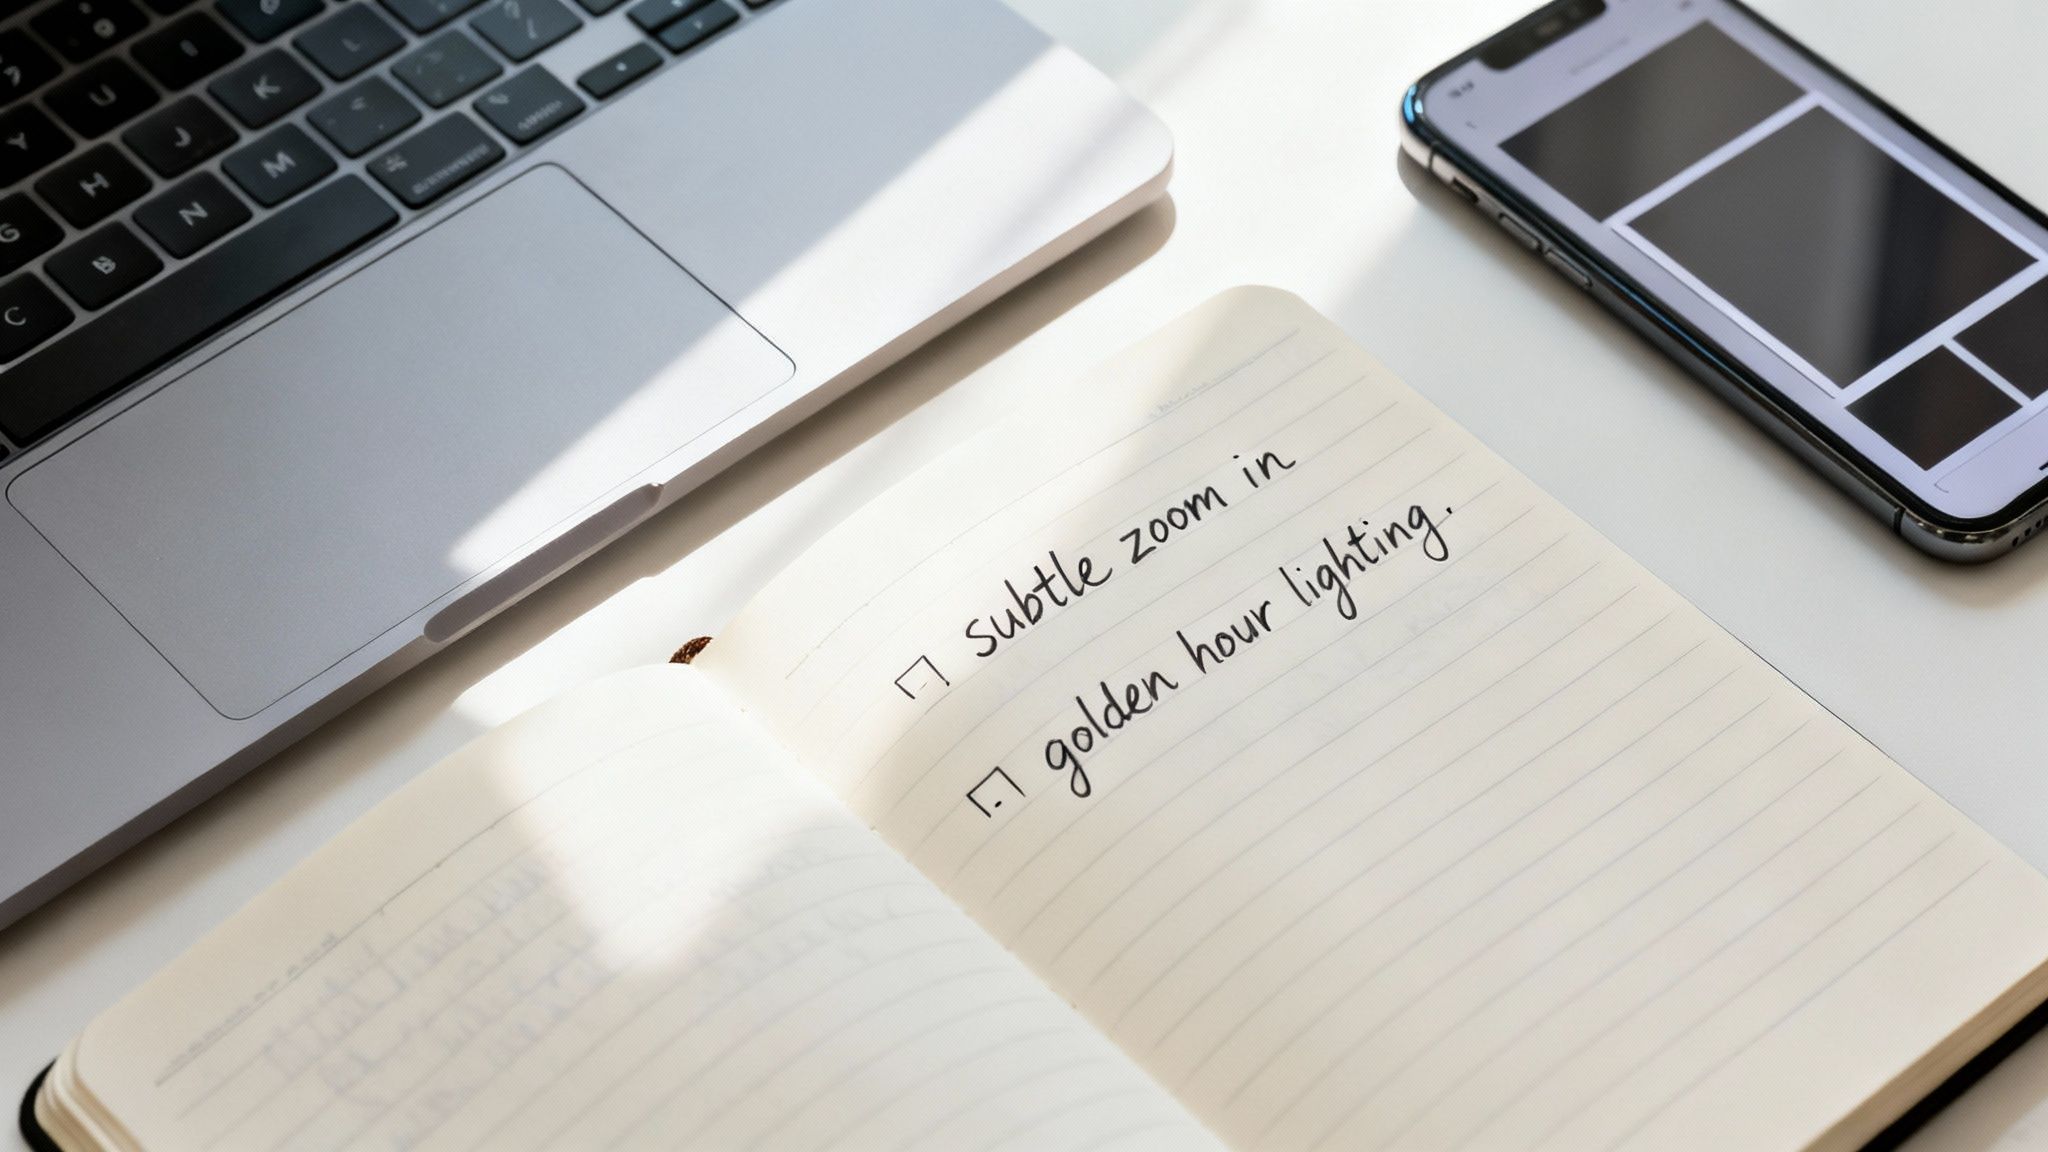 subtle zoom in
golden hour lighting.
U
K
L
Y
J
H
M
G
N
B
C